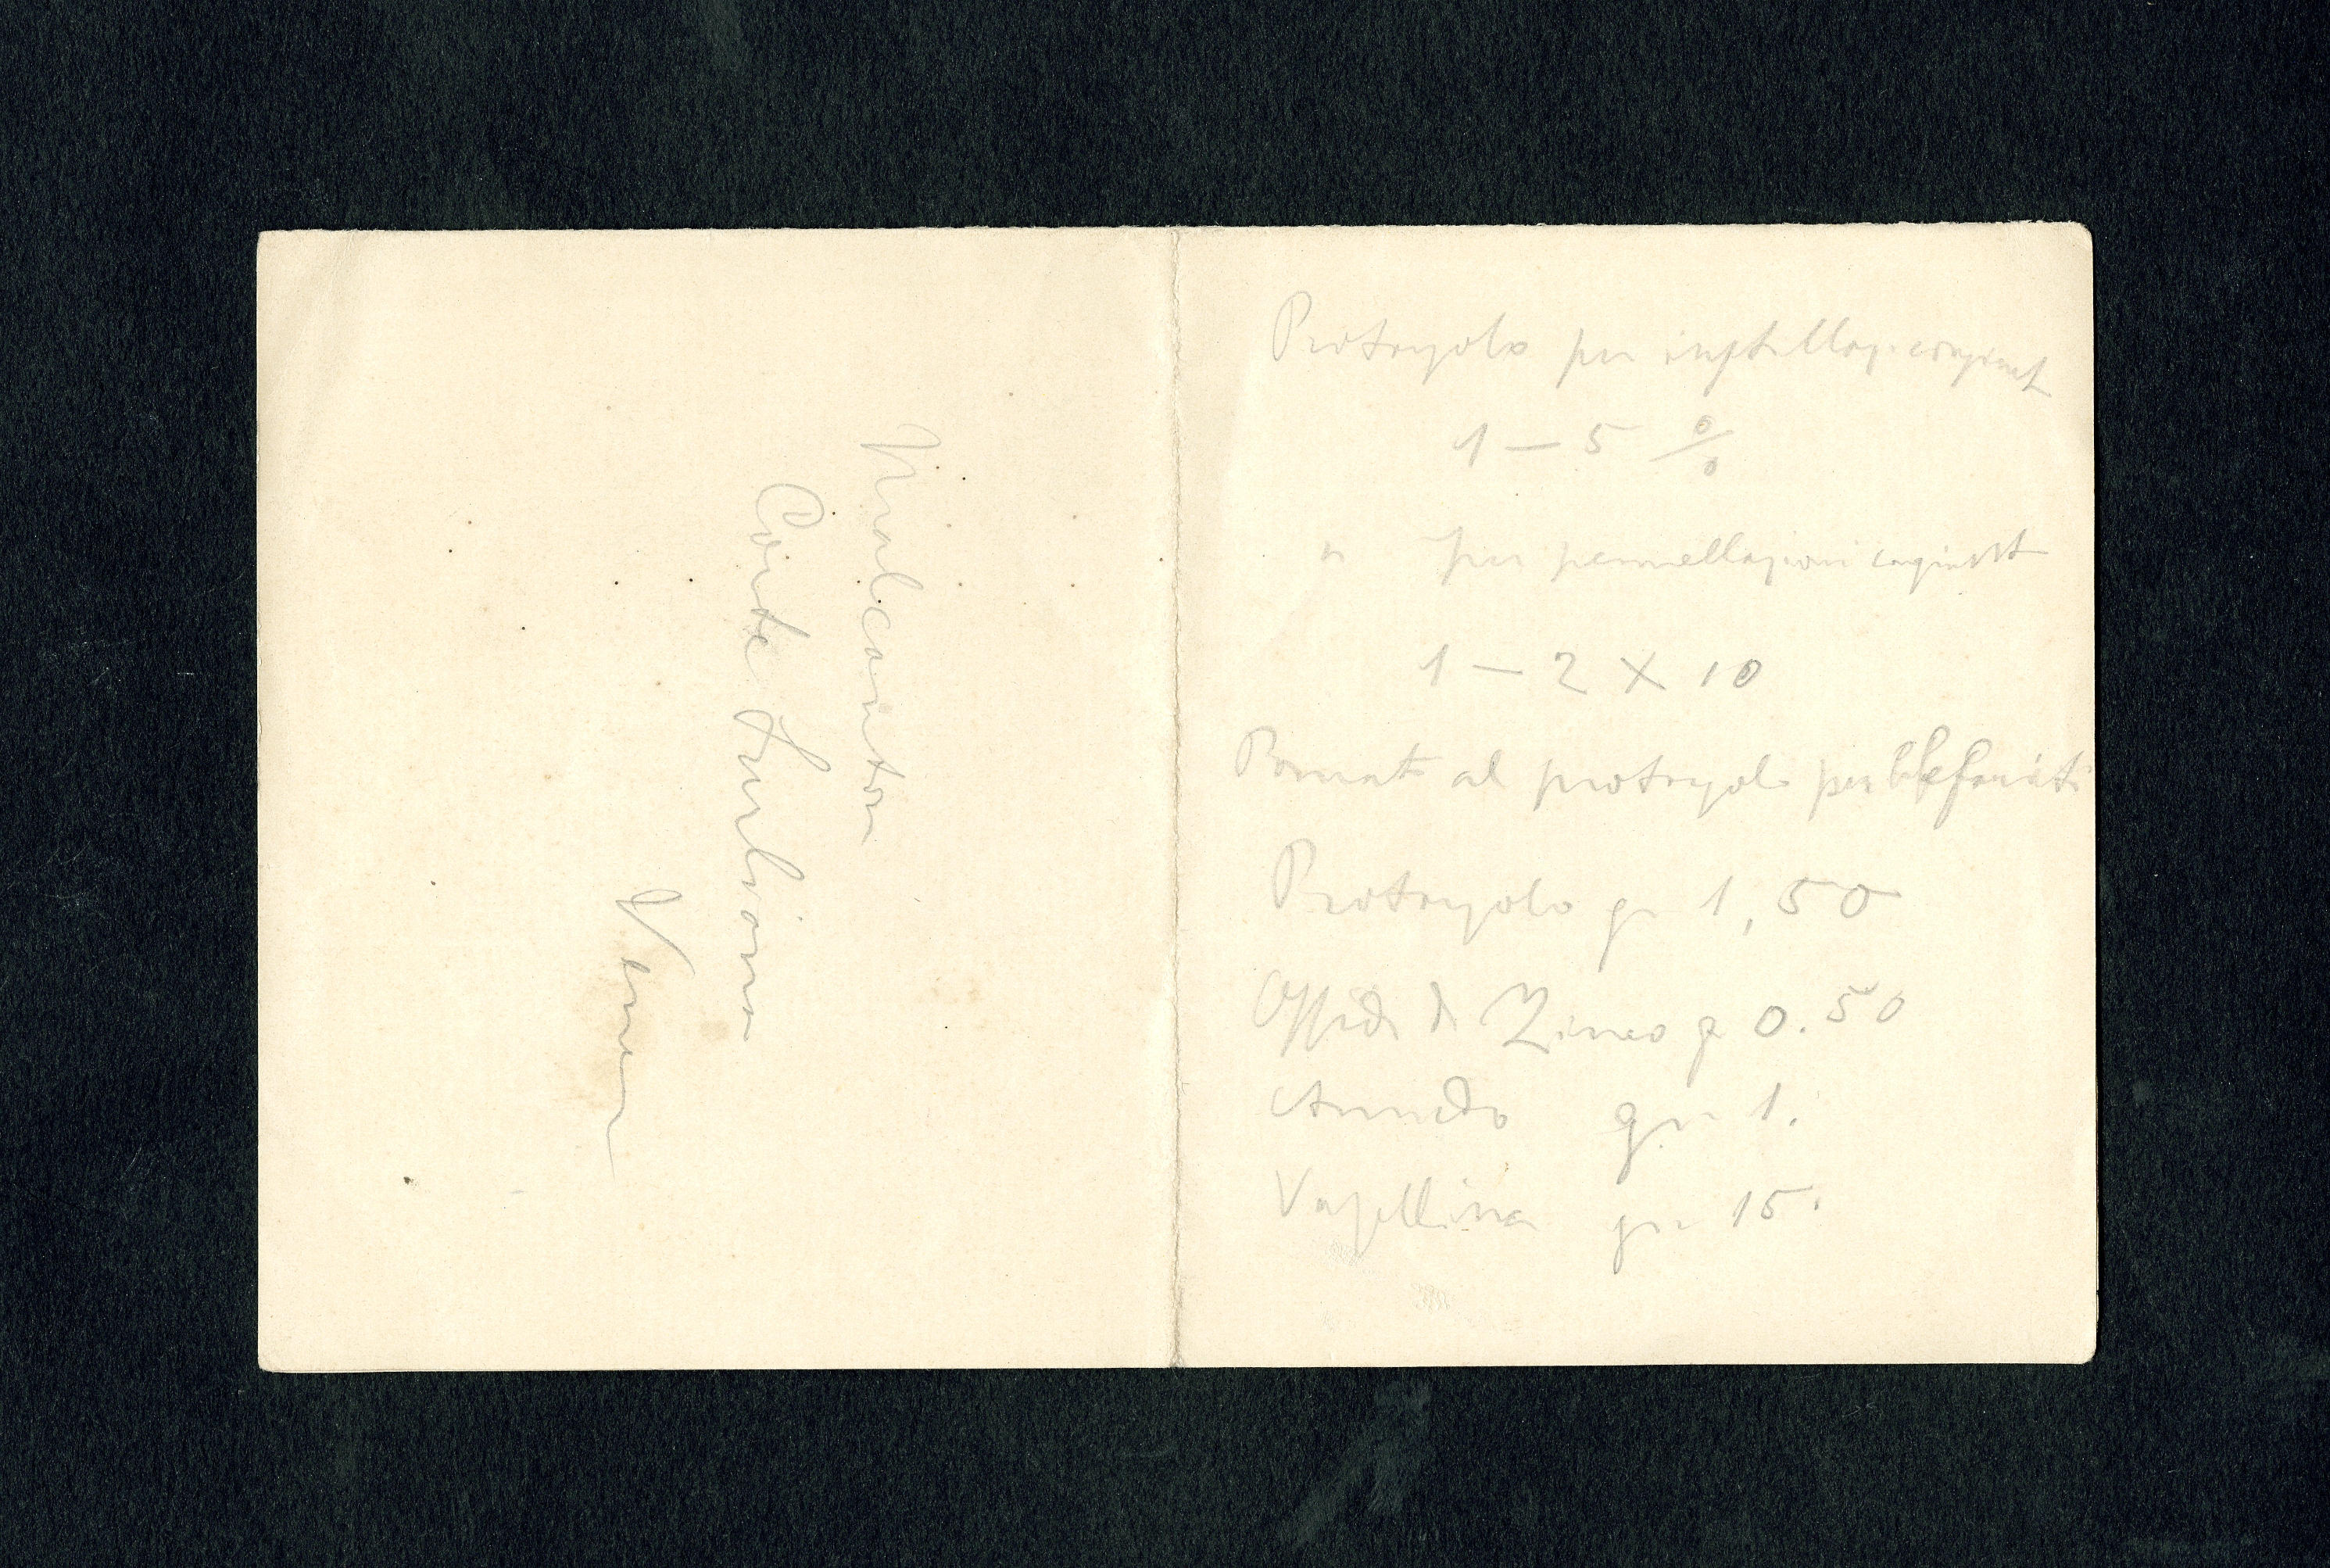 Malcanton
Corte Furlana
Protargolo per instillaz. congiunt
1 — 5 %
" per pennellazioni congiunt
1 — 2 X 10
Pomat al protargolo per blefariti
Protargolo gr 1,50
Ossido di Zinco gr 0.50
Amido gr 1.
Vasellina gr 15.